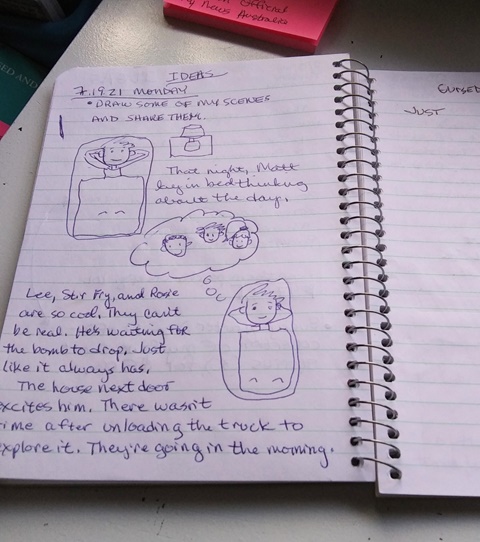 Official
News Australia
IDEAS
7.19.21 MONDAY
• DRAW SOME OF MY SCENES
AND SHARE THEM.
That night, Matt
lay in bed thinking
about the day.
Lee, Stir Fry, and Rosie
are so cool. They can't
be real. He's waiting for
the bomb to drop. Just
like it always has.
The house next door
excites him. There wasn't
time after unloading the truck to
explore it. They're going in the morning.
CURSED
JUST